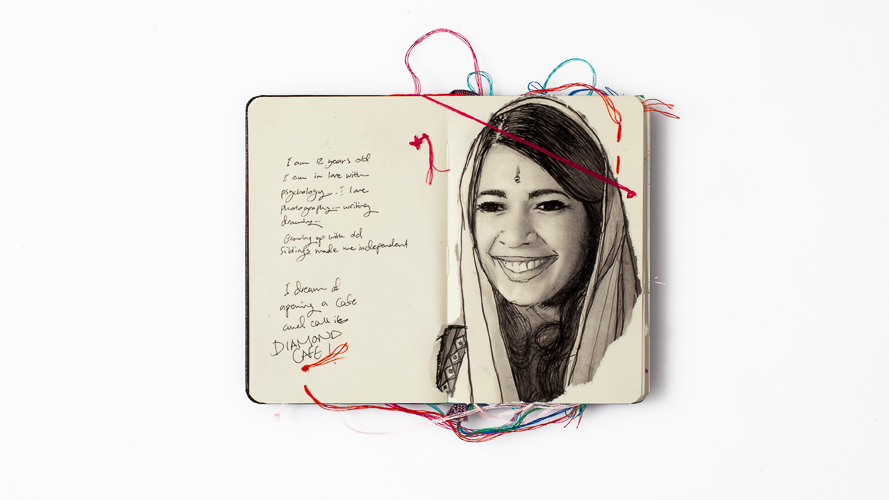 I am 12 years old
I am in love with
psychology... I love
photography... writing
drawing...
Growing up with old
siblings made me independent
I dream of
opening a cafe
and call it
DIAMOND
CAFE!